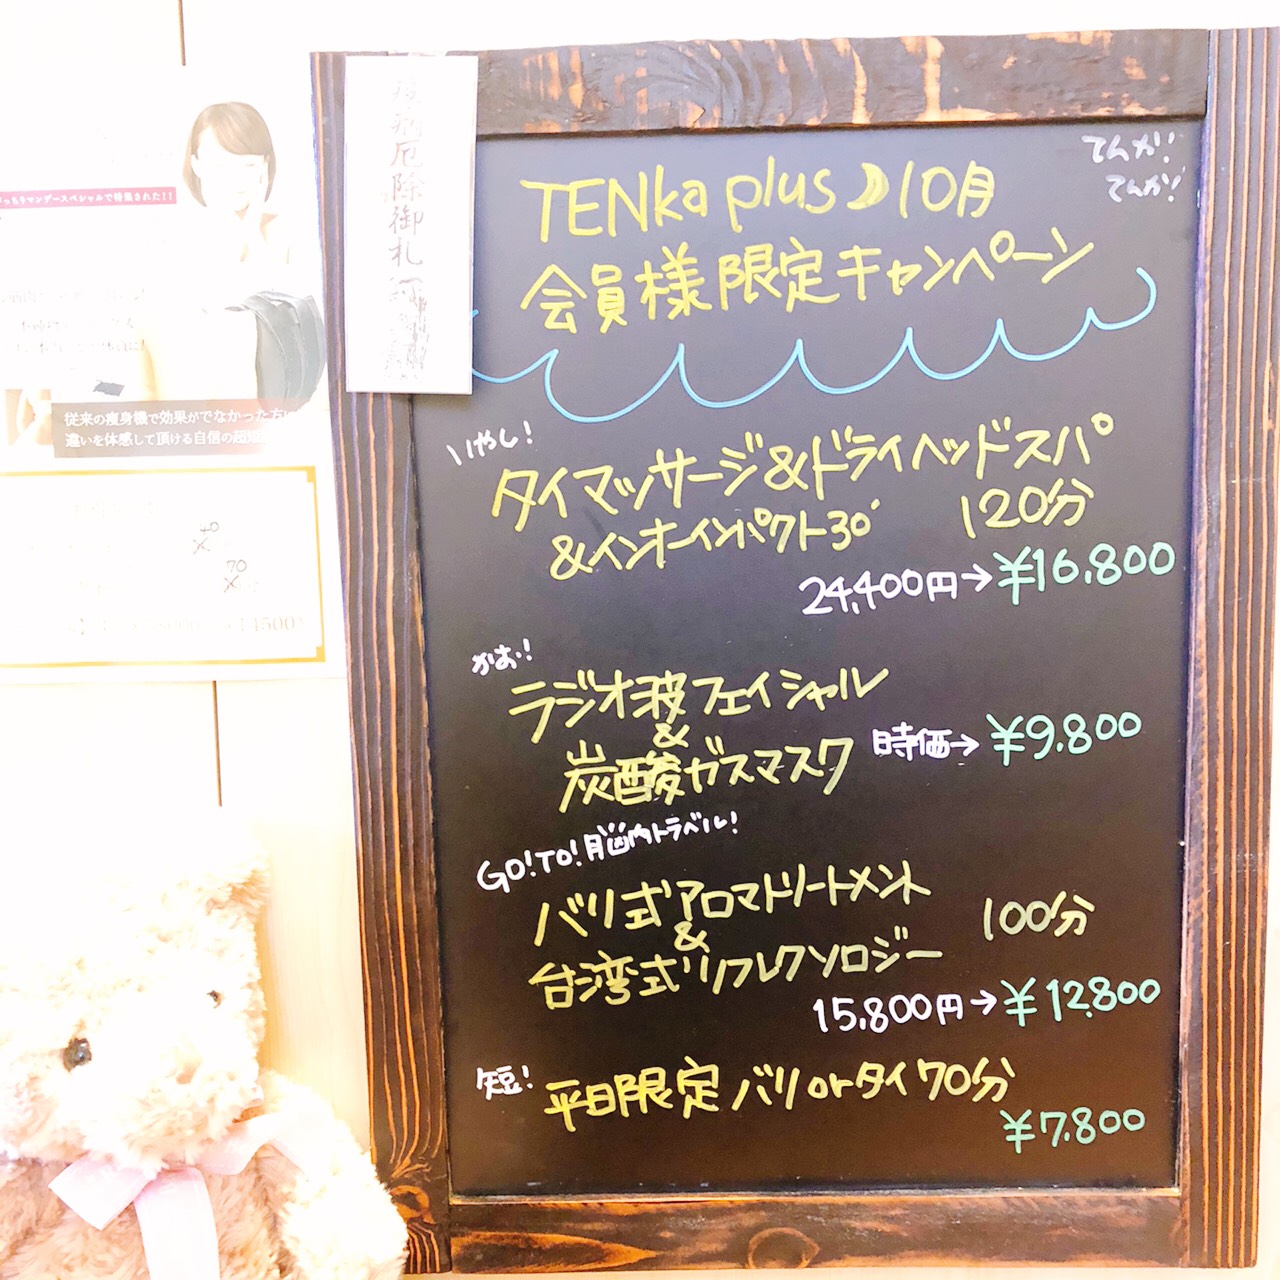 てんか!
てんか!
TENka plus 10月
会員様限定キャンペーン
いやし!
タイマッサージ&ドライヘッドスパ
&インナーインパクト30' 120分
24,400円→¥16,800
かお!
ラジオ波フェイシャル
&
炭酸ガスマスク 時価→¥9,800
GO!TO!脳内トラベル!
バリ式アロマトリートメント
&
100分
台湾式リフレクソロジー
15,800円→¥12,800
短! 平日限定バリorタイ70分
¥7,800
病厄除御札
っちりマンデースペシャルで特集された!!
従来の痩身機で効果がでなかった方に
違いを体感して頂ける自信の超
40
70